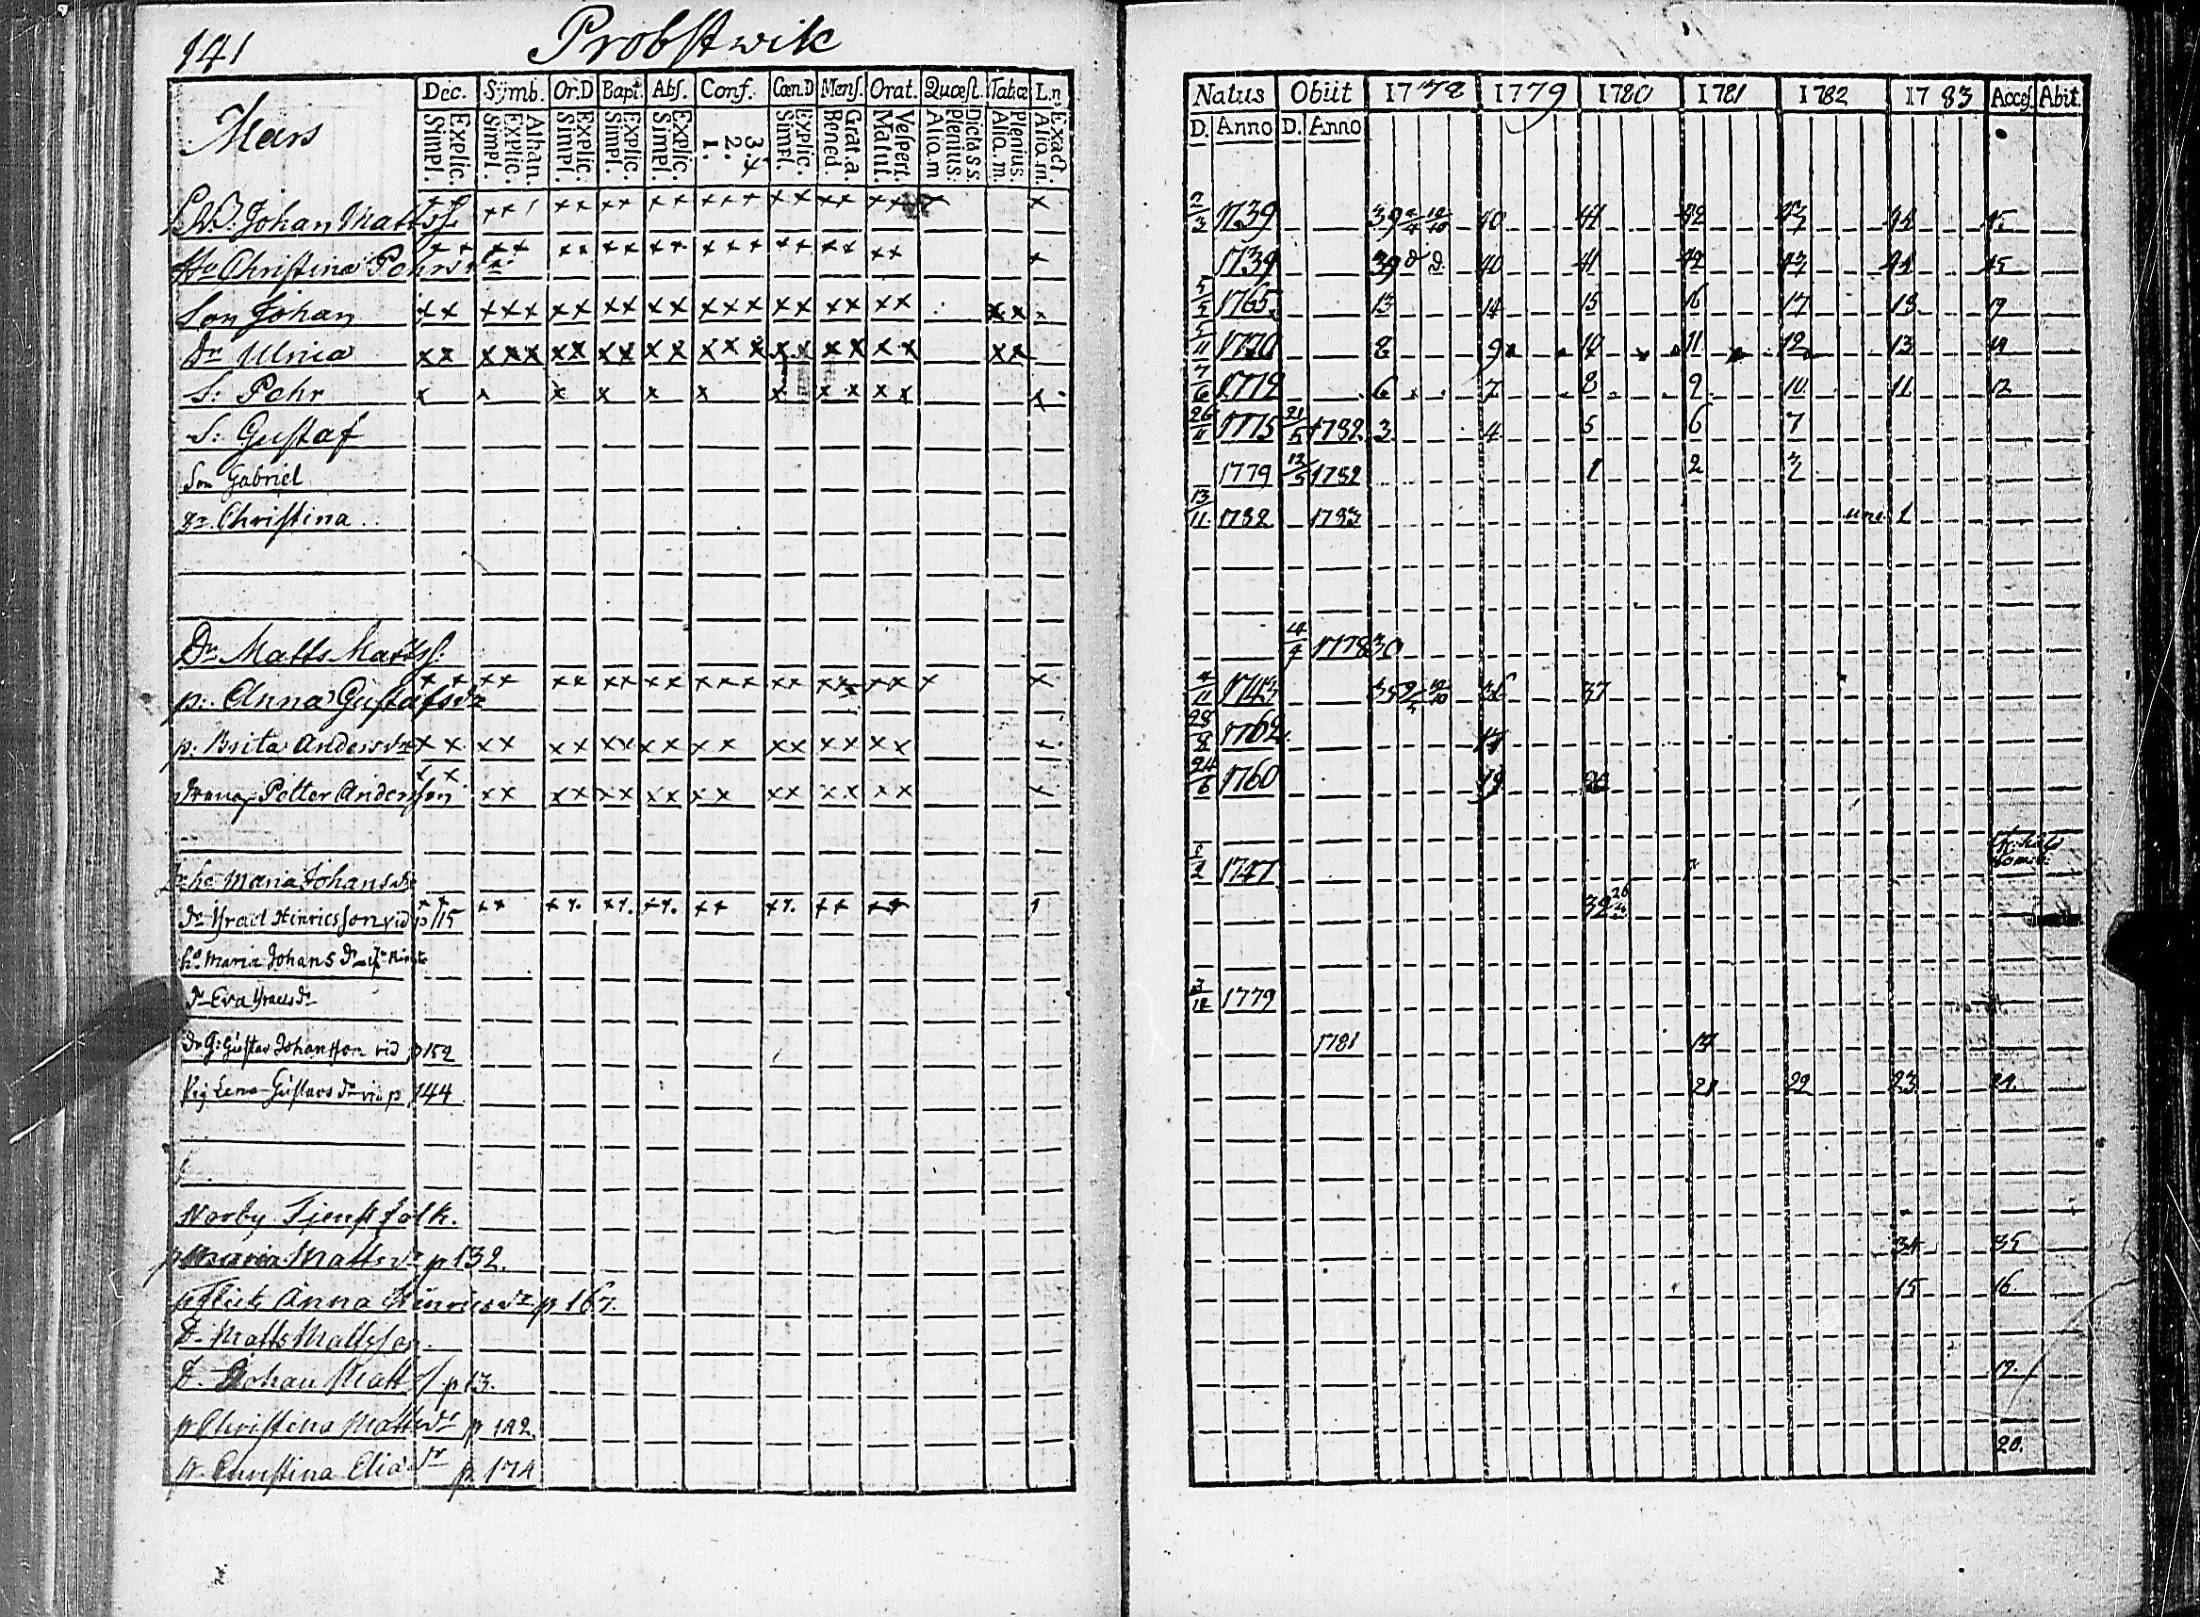 141 Probstwik
Dec. Symb. Or.D Bapt. Abs. Conf. Cœn.D Mens. Orat. Quæst. Tabæ L.n.
Mars
Explic. Simpl. Athan. Explic. Simpl. Explic. Simpl. Explic. Simpl. Explic. Simpl. 3.4 2. 1. Explic. Simpl. Grat.a. Bened. Vespert. Matut. Dicta S.S. Plenius. Aliq.m Plenius. Aliq.m. Exact. Aliq.m.
Johan Matts
Christina Pehrs
Son Johan
Dr Ulrica
S: Pehr
S: Gustaf
Son Gabriel
Christina
Dr. Matts Matts
p. Anna Gustafsdr
p. Brita Andersdr
Petter Andersson
Maria Johansdr
Dr Israel Hinricsson vid p 115
ho Maria Johans Dr
Dr Eva
Gustav Johansson vid p 152
Pig Lena Gustavs Dr vid p 144
Norby Tienstfolk.
p Maria Mattsdr p 132.
p Anna Hinricsdr p 167
D. Matts Mattsson
D. Johan Matt p 13.
p Christina Mattsdr p 142
p. Christina Elia Dr p 174
Natus Obiit 1778 1779 1780 1781 1782 1783 Acces. Abit.
D. Anno D. Anno
2/3 1739 39 40 41 42 43 44 45
1739 39 40 41 42 43 44 45
5/5 1765 13 14 15 16 17 18 19
5/11 1770 8 9 10 11 12 13 14
7/6 1772 6 7 8 9 10 11 12
26/11 1775 21/5 1782 3 4 5 6 7
1779 12/5 1782 1 2 3
13/11 1782 1783 1
4/4 1778 30
4/11 1743 35 36 37
28/8 1762 17
24/6 1760 19 20
1747
32
3/12 1779
1781 17
21 22 23 24
34 35
15 16
19.
20.